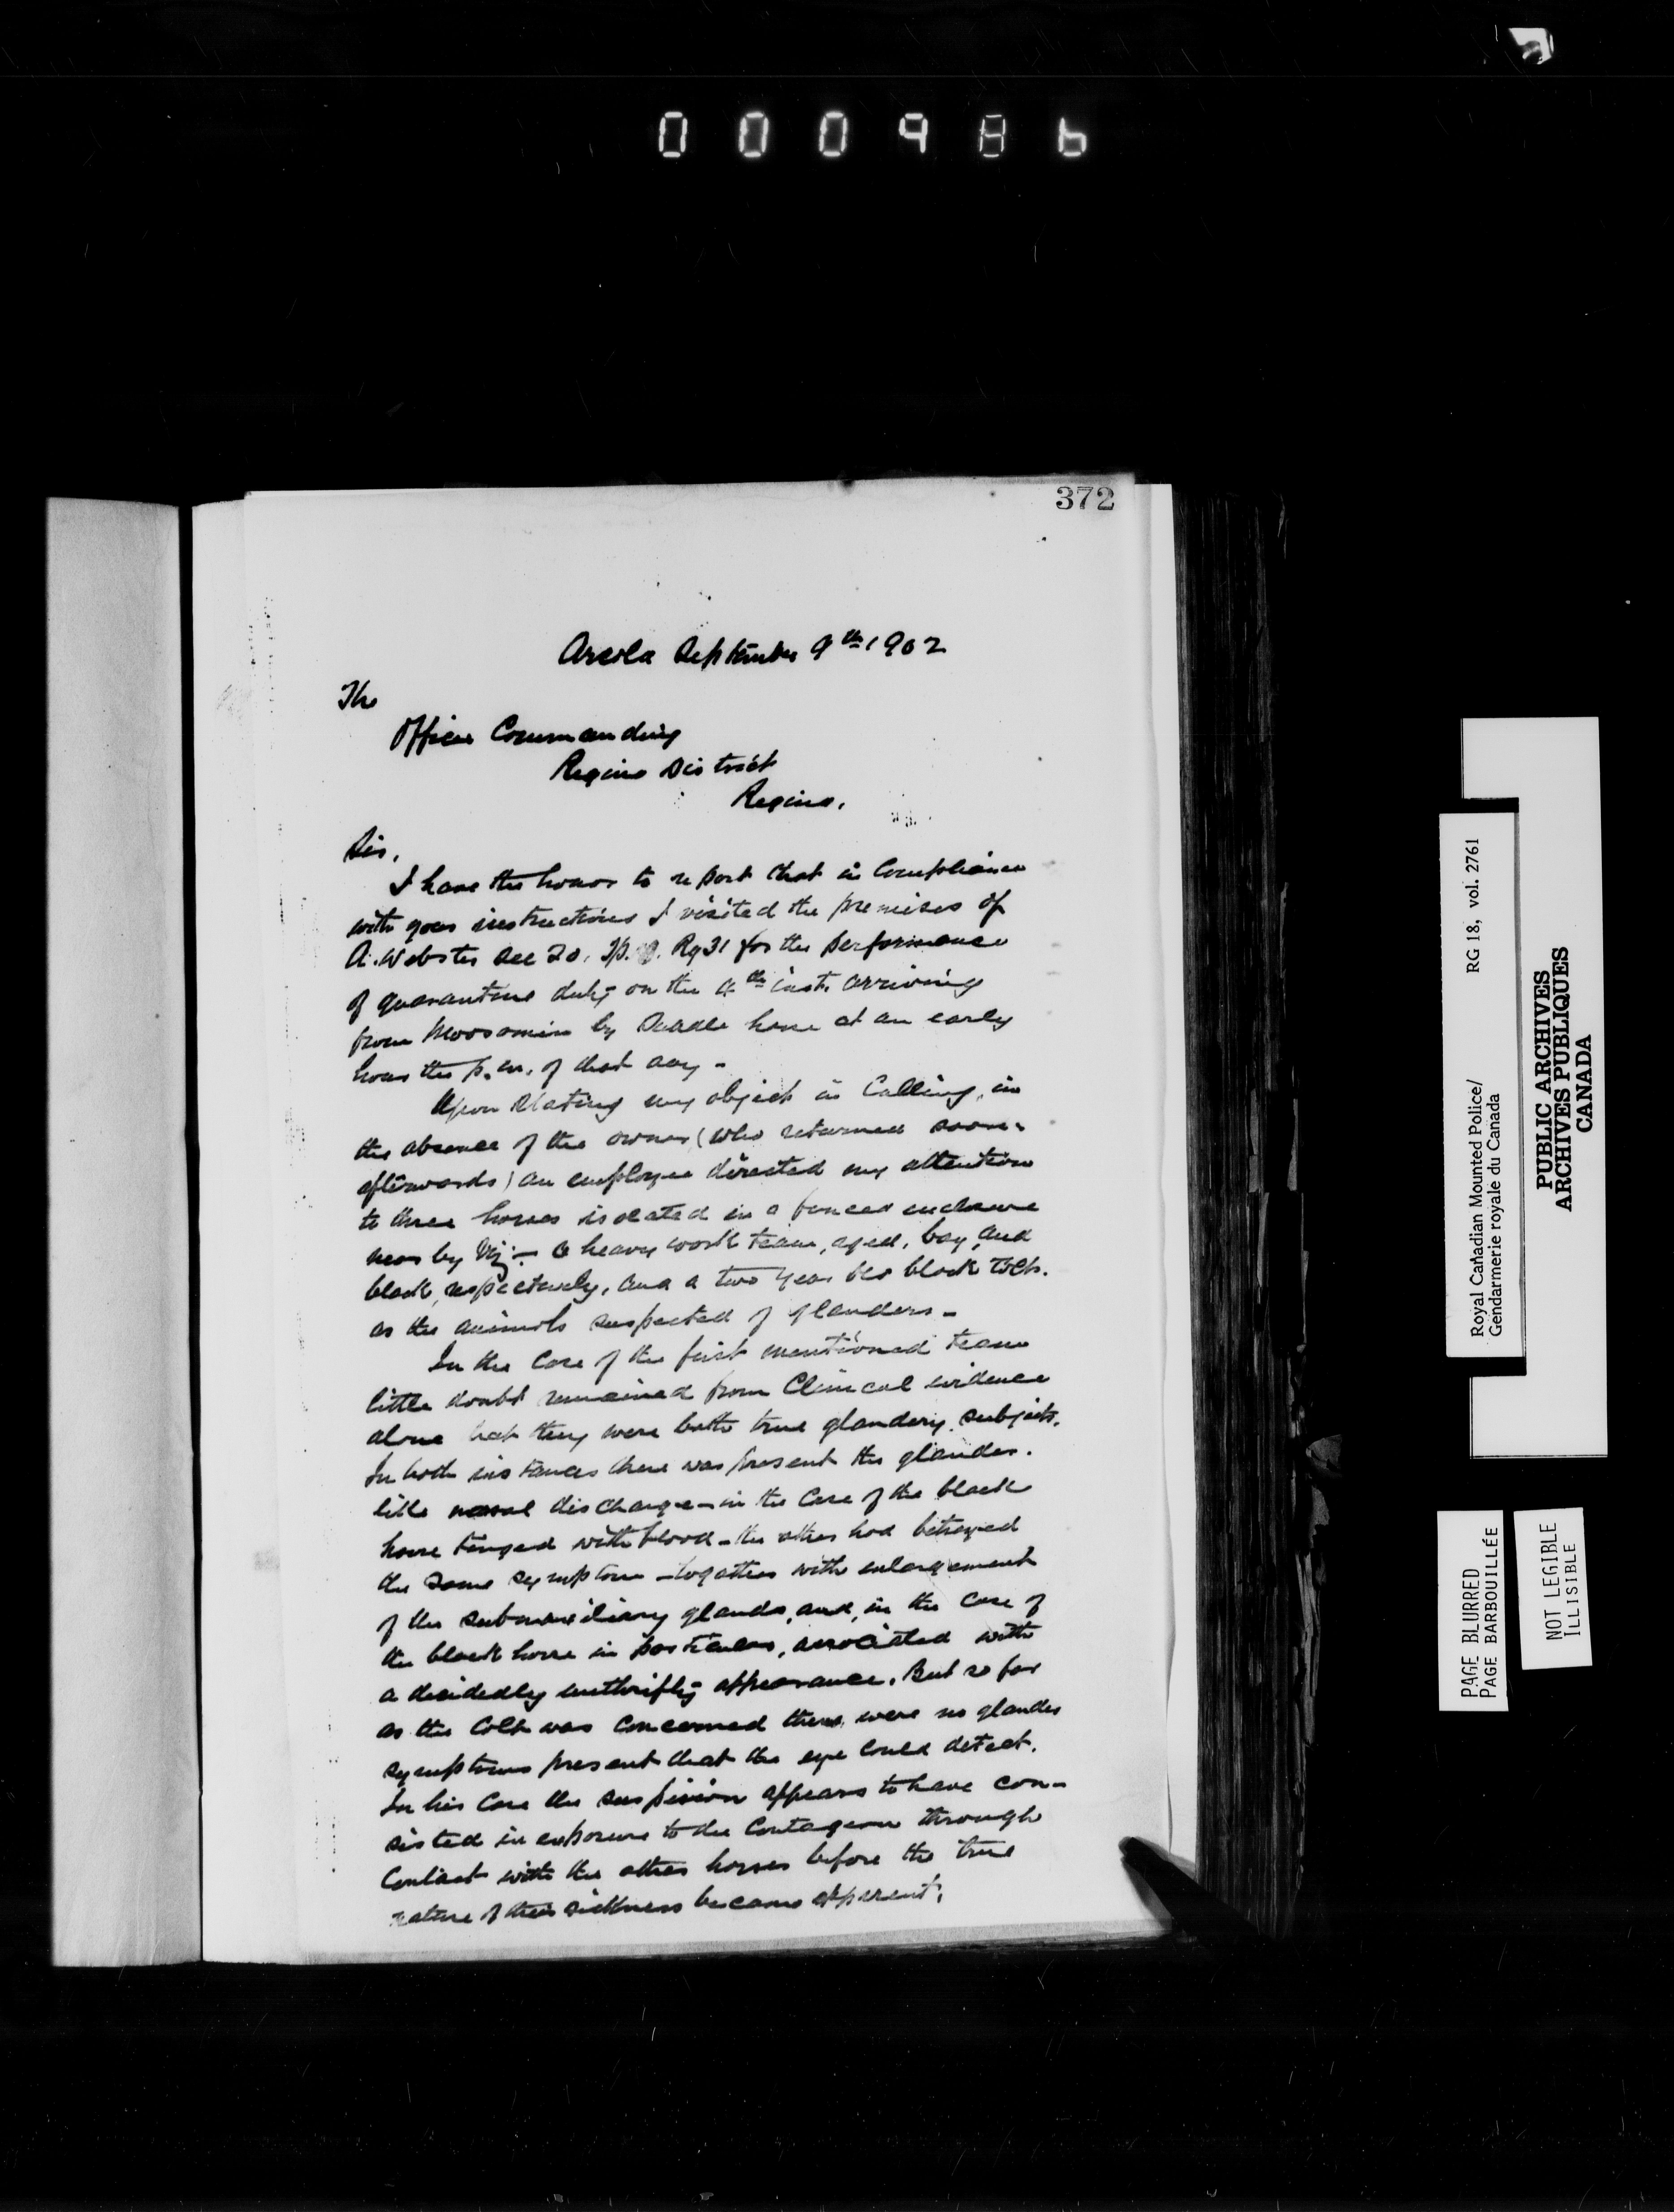 0 0 0 9 8 6
372
Arcola September 9th 1902
The
Officer Commanding
Regina District
Regina.
Sir,
I have the honor to report that in Compliance
with your instructions I visited the premises of
A. Webster Sec 20. Tp. Rg 31 for the performance
of quarantine duty on the 4th inst. arriving
from Moosomin by Saddle horse at an early
hour the p.m. of that day -
Upon stating my object in Calling, in
the absence of the owner (who returned soon-
afterwards) an employee directed my attention
to three horses isolated in a fenced enclosure
near by Viz:- a heavy work team, aged, bay, and
black, respectively, and a two year old black Colt.
as the animals suspected of glanders -
In the Case of the first mentioned team
little doubt remained from Clinical evidence
alone that they were both true glandery subjects.
In both instances there was present the glander-
like nasal discharge - in the Case of the black
horse tinged with blood - the other had betrayed
the same symptom - together with enlargement
of the submaxiliary glands, and, in the Case of
the black horse in particular, associated with
a decidedly unthrifty appearance. But so far
as the Colt was Concerned there were no glander
symptoms present that the eye could detect.
In his Case the suspicion appears to have con-
sisted in exposure to the Contageon through
Contact with the other horses before the true
nature of their sickness became apparent.
Royal Canadian Mounted Police/ RG 18, vol. 2761
Gendarmerie royale du Canada
PUBLIC ARCHIVES
ARCHIVES PUBLIQUES
CANADA
PAGE BLURRED
PAGE BARBOUILLÉE
NOT LEGIBLE
ILLISIBLE